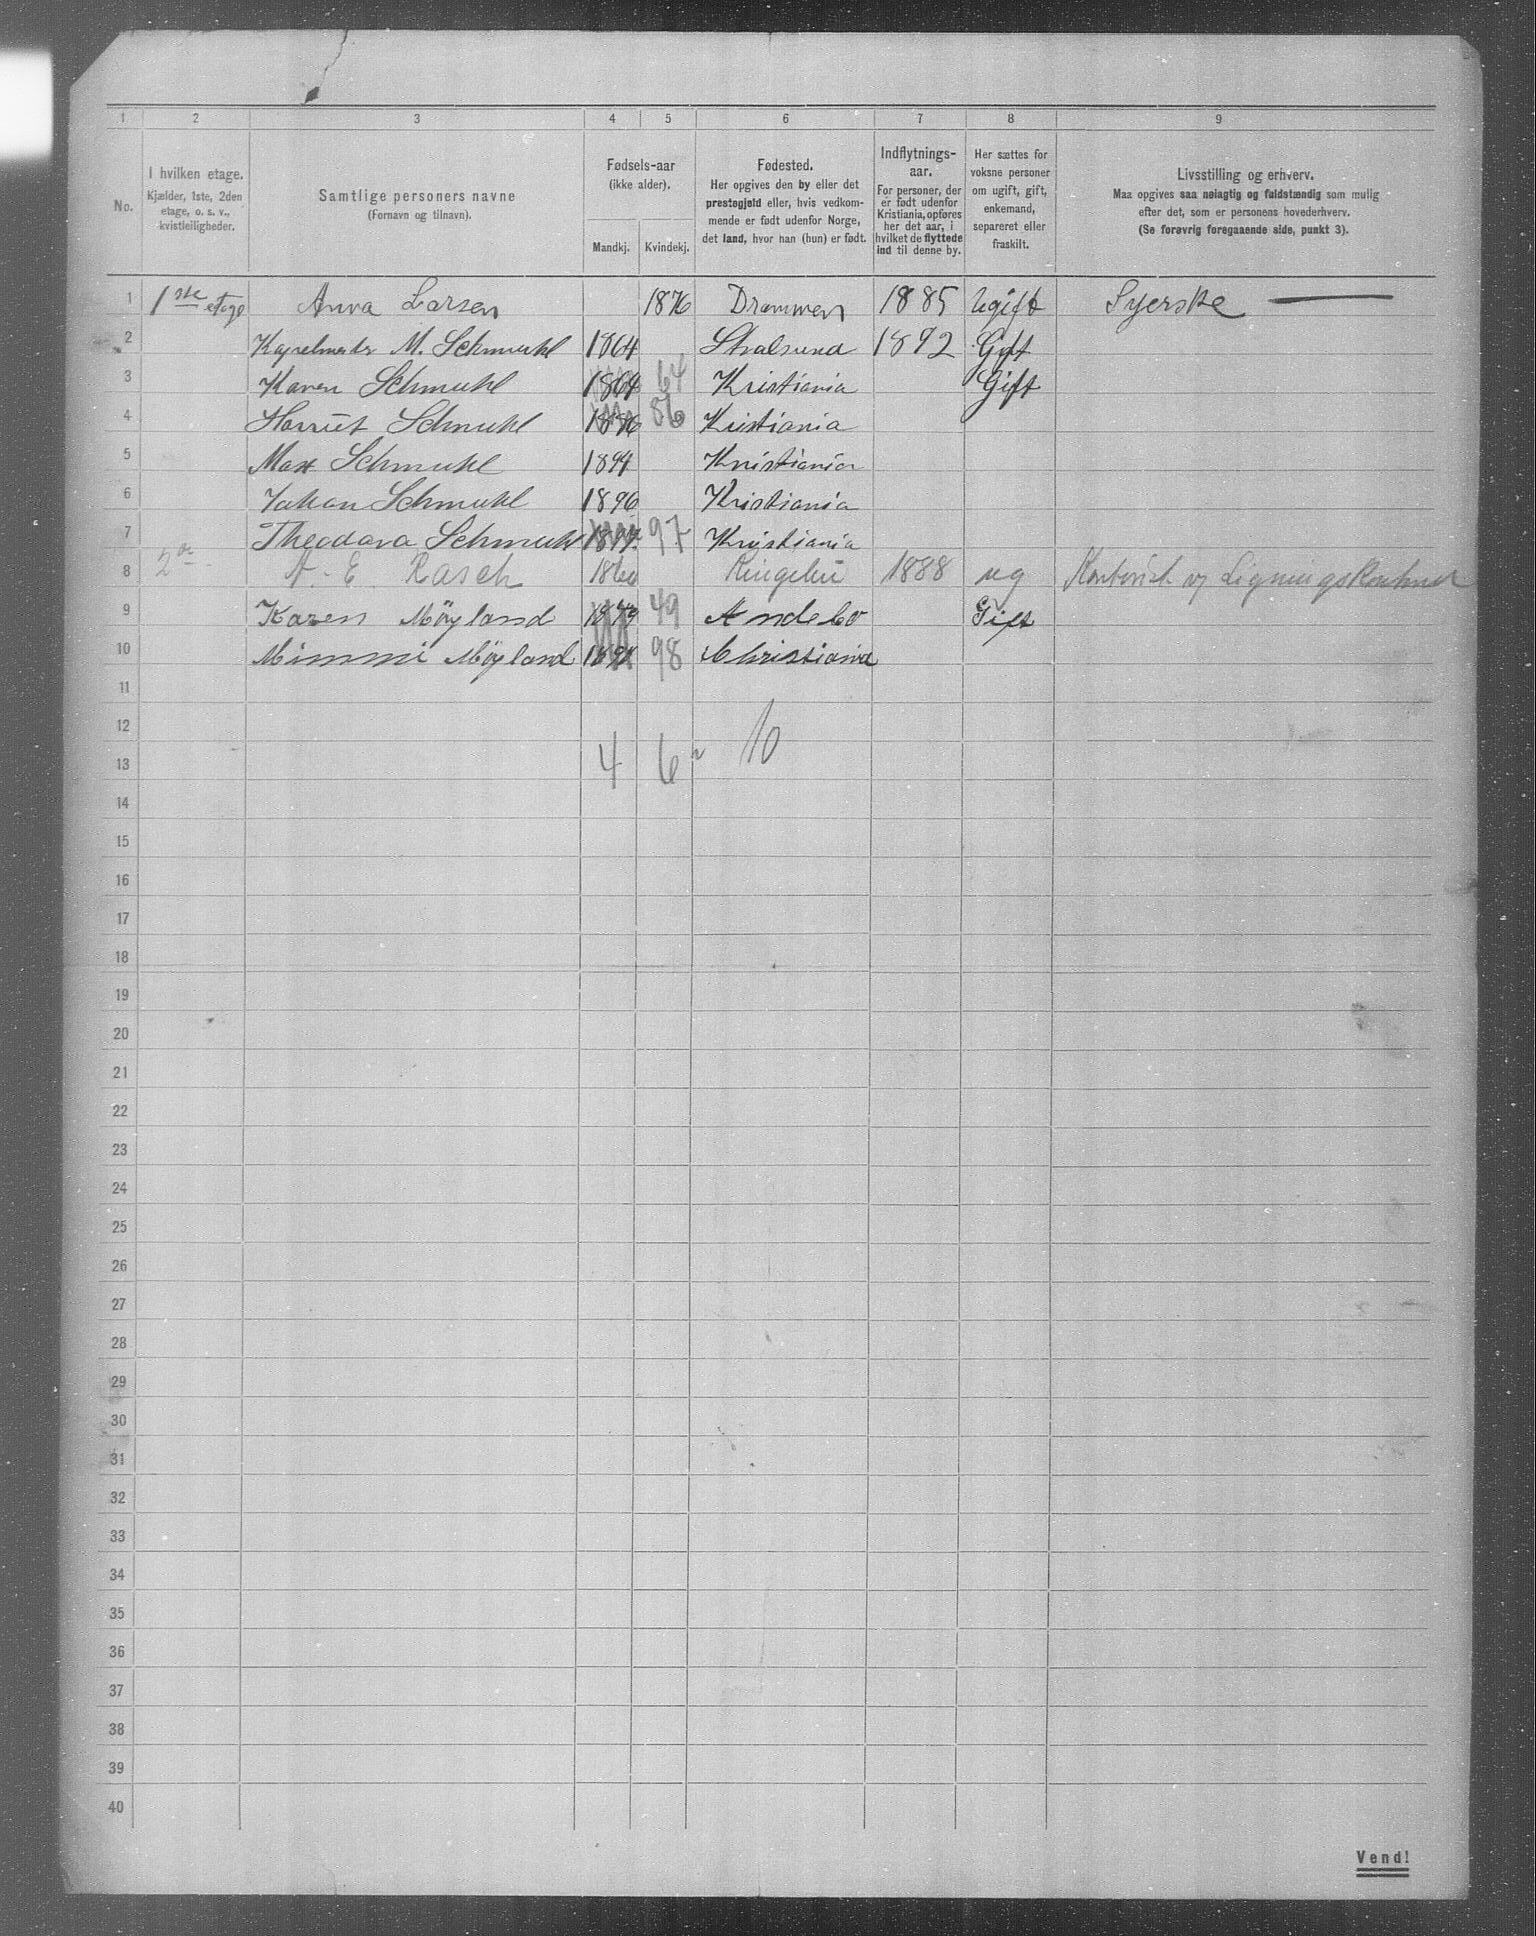 1 2 3 4 5 6 7 8 9
No.
I hvilken etage.
Kjælder, 1ste, 2den
etage, o. s. v.,
kvistleiligheder.
Samtlige personers navne
(Fornavn og tilnavn).
Fødsels-aar
(ikke alder).
Mandkj. Kvindekj.
Fødested.
Her opgives den by eller det
prestegjeld eller, hvis vedkom-
mende er født udenfor Norge,
det land, hvor han (hun) er født.
Indflytnings-
aar.
For personer, der
er født udenfor
Kristiania, opføres
her det aar, i
hvilket de flyttede
ind til denne by.
Her sættes for
voksne personer
om ugift, gift,
enkemand,
separeret eller
fraskilt.
Livsstilling og erhverv.
Maa opgives saa nøiagtig og fuldstændig som mulig
efter det, som er personens hovederhverv.
(Se forøvrig foregaaende side, punkt 3).
1 1ste etage Anna Larsen 1876 Drammen 1885 Ugift Syerske
2 Kapelmester M. Schmuhl 1864 Stralsund 1892 Gift
3 Karen Schmuhl 1864 64 Kristiania Gift
4 Harriet Schmuhl 1886 86 Kristiania
5 Max Schmuhl 1894 Kristiania
6 Johan Schmuhl 1896 Kristiania
7 Theodora Schmuhl 1897 97 Kristiania
8 2den E. Rasch 1860 Ringebu 1888 ug Kontorist og Ligningskontoret
9 Karen Möyland 1849 49 Andebo Gift
10 Mimmi Möyland 1898 98 Christiania
11
12 10
13 4 6
14
15
16
17
18
19
20
21
22
23
24
25
26
27
28
29
30
31
32
33
34
35
36
37
38
39
40
Vend!